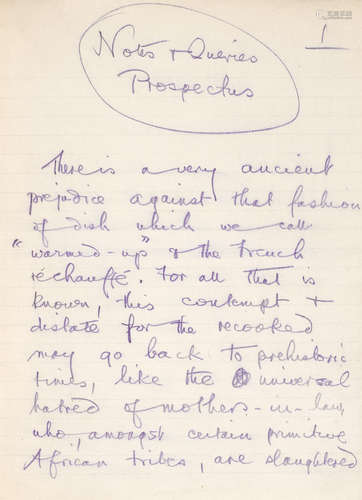 Notes + Queries
Prospectus
1
There is a very ancient
prejudice against that fashion
of dish which we call
"warmed-up" & the French
réchauffé. For all that is
known, this contempt +
distate for the recooked
may go back to prehistoric
times, like the universal
hatred of mothers-in-law,
who, amongst certain primitive
African tribes, are slaughtered